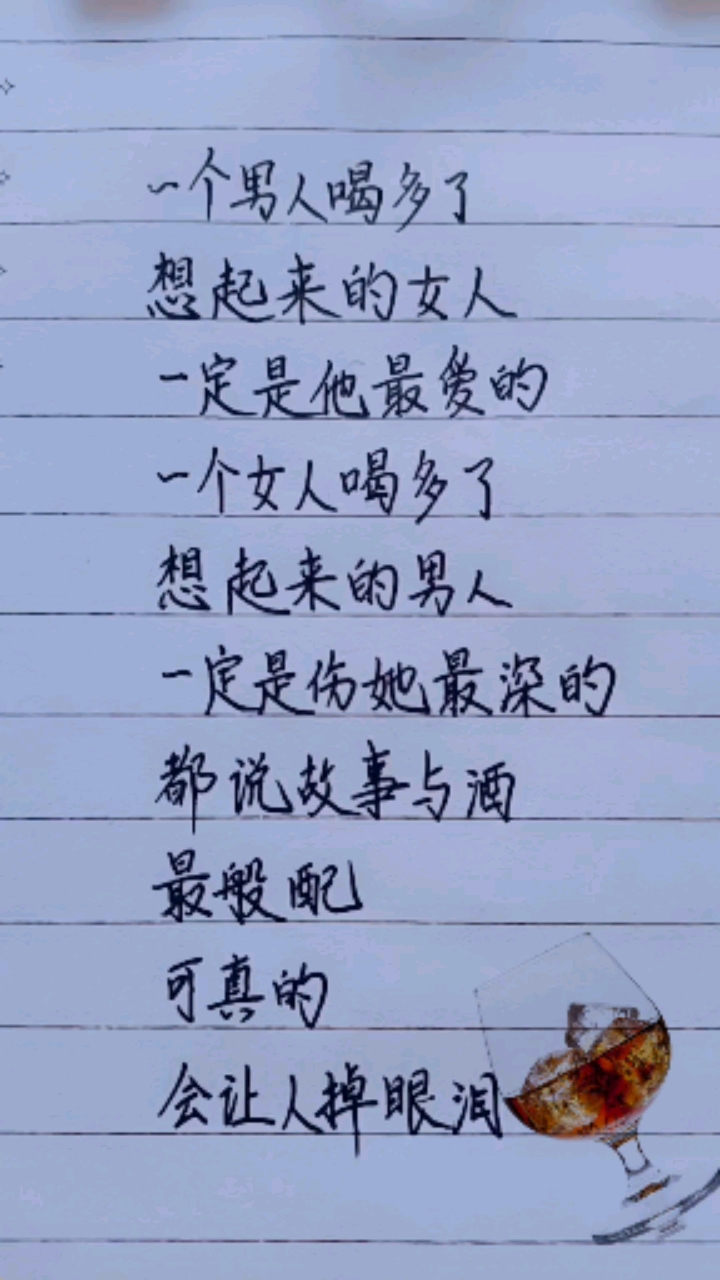 一个男人喝多了
想起来的女人
一定是他最爱的
一个女人喝多了
想起来的男人
一定是伤她最深的
都说故事与酒
最般配
可真的
会让人掉眼泪